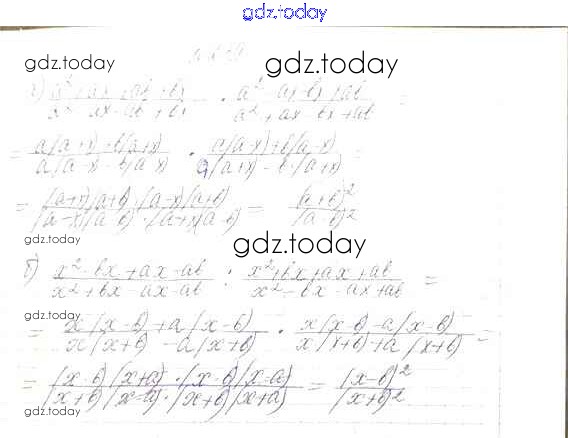 gdz.today
gdz.today
gdz.today
gdz.today
а) a² + ax + ab + bx / a² - ax - ab + bx · a² - ax - bx + ab / a² + ax - bx - ab =
gdz.today
gdz.today
= a(a+x)+b(a+x) / a(a-x)-b(a-x) · a(a-x)+b(a-x) / a(a+x)-b(a+x) =
= (a+x)(a+b)·(a-x)(a+b) / (a-x)(a-b)·(a+x)(a-b) = (a+b)² / (a-b)²
gdz.today
gdz.today
б) x² - bx + ax - ab / x² + bx - ax - ab : x² + bx + ax + ab / x² - bx - ax + ab =
gdz.today
gdz.today
= x(x-b)+a(x-b) / x(x+b)-a(x+b) · x(x-b)-a(x-b) / x(x+b)+a(x+b) =
= (x-b)(x+a)·(x-b)(x-a) / (x+b)(x-a)·(x+b)(x+a) = (x-b)² / (x+b)²
gdz.today
gdz.today